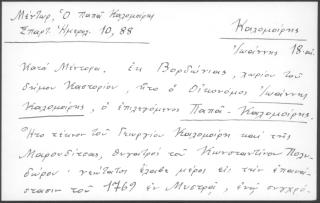 Μέντωρ, Ὁ παπᾶ Καλομοίρης
Σπαρτ. Ἡμερολ. 10, 88
Καλομοίρης
Ἰωάννης 18-αι.
Κατὰ Μέντορα. Ἐκ Βορδώνιας, χωρίου τοῦ
δήμου Καστορίου, ἦτο ὁ Οἰκονόμος Ἰωάννης
Καλομοίρης, ὁ ἐπιλεγόμενος Παπᾶ-Καλομοίρης.
Ἦτο τέκνον τοῦ Γεωργίου Καλομοίρη καὶ τῆς
Μαρουδίτσας, θυγατρὸς τοῦ Κωνσταντίνου Πολυ-
δώρου· νεώτατος ἔλαβε μέρος εἰς τὴν ἐπανά-
στασιν τοῦ 1769 ἐν Μυστρᾷ, ἐνῷ συγχρό-